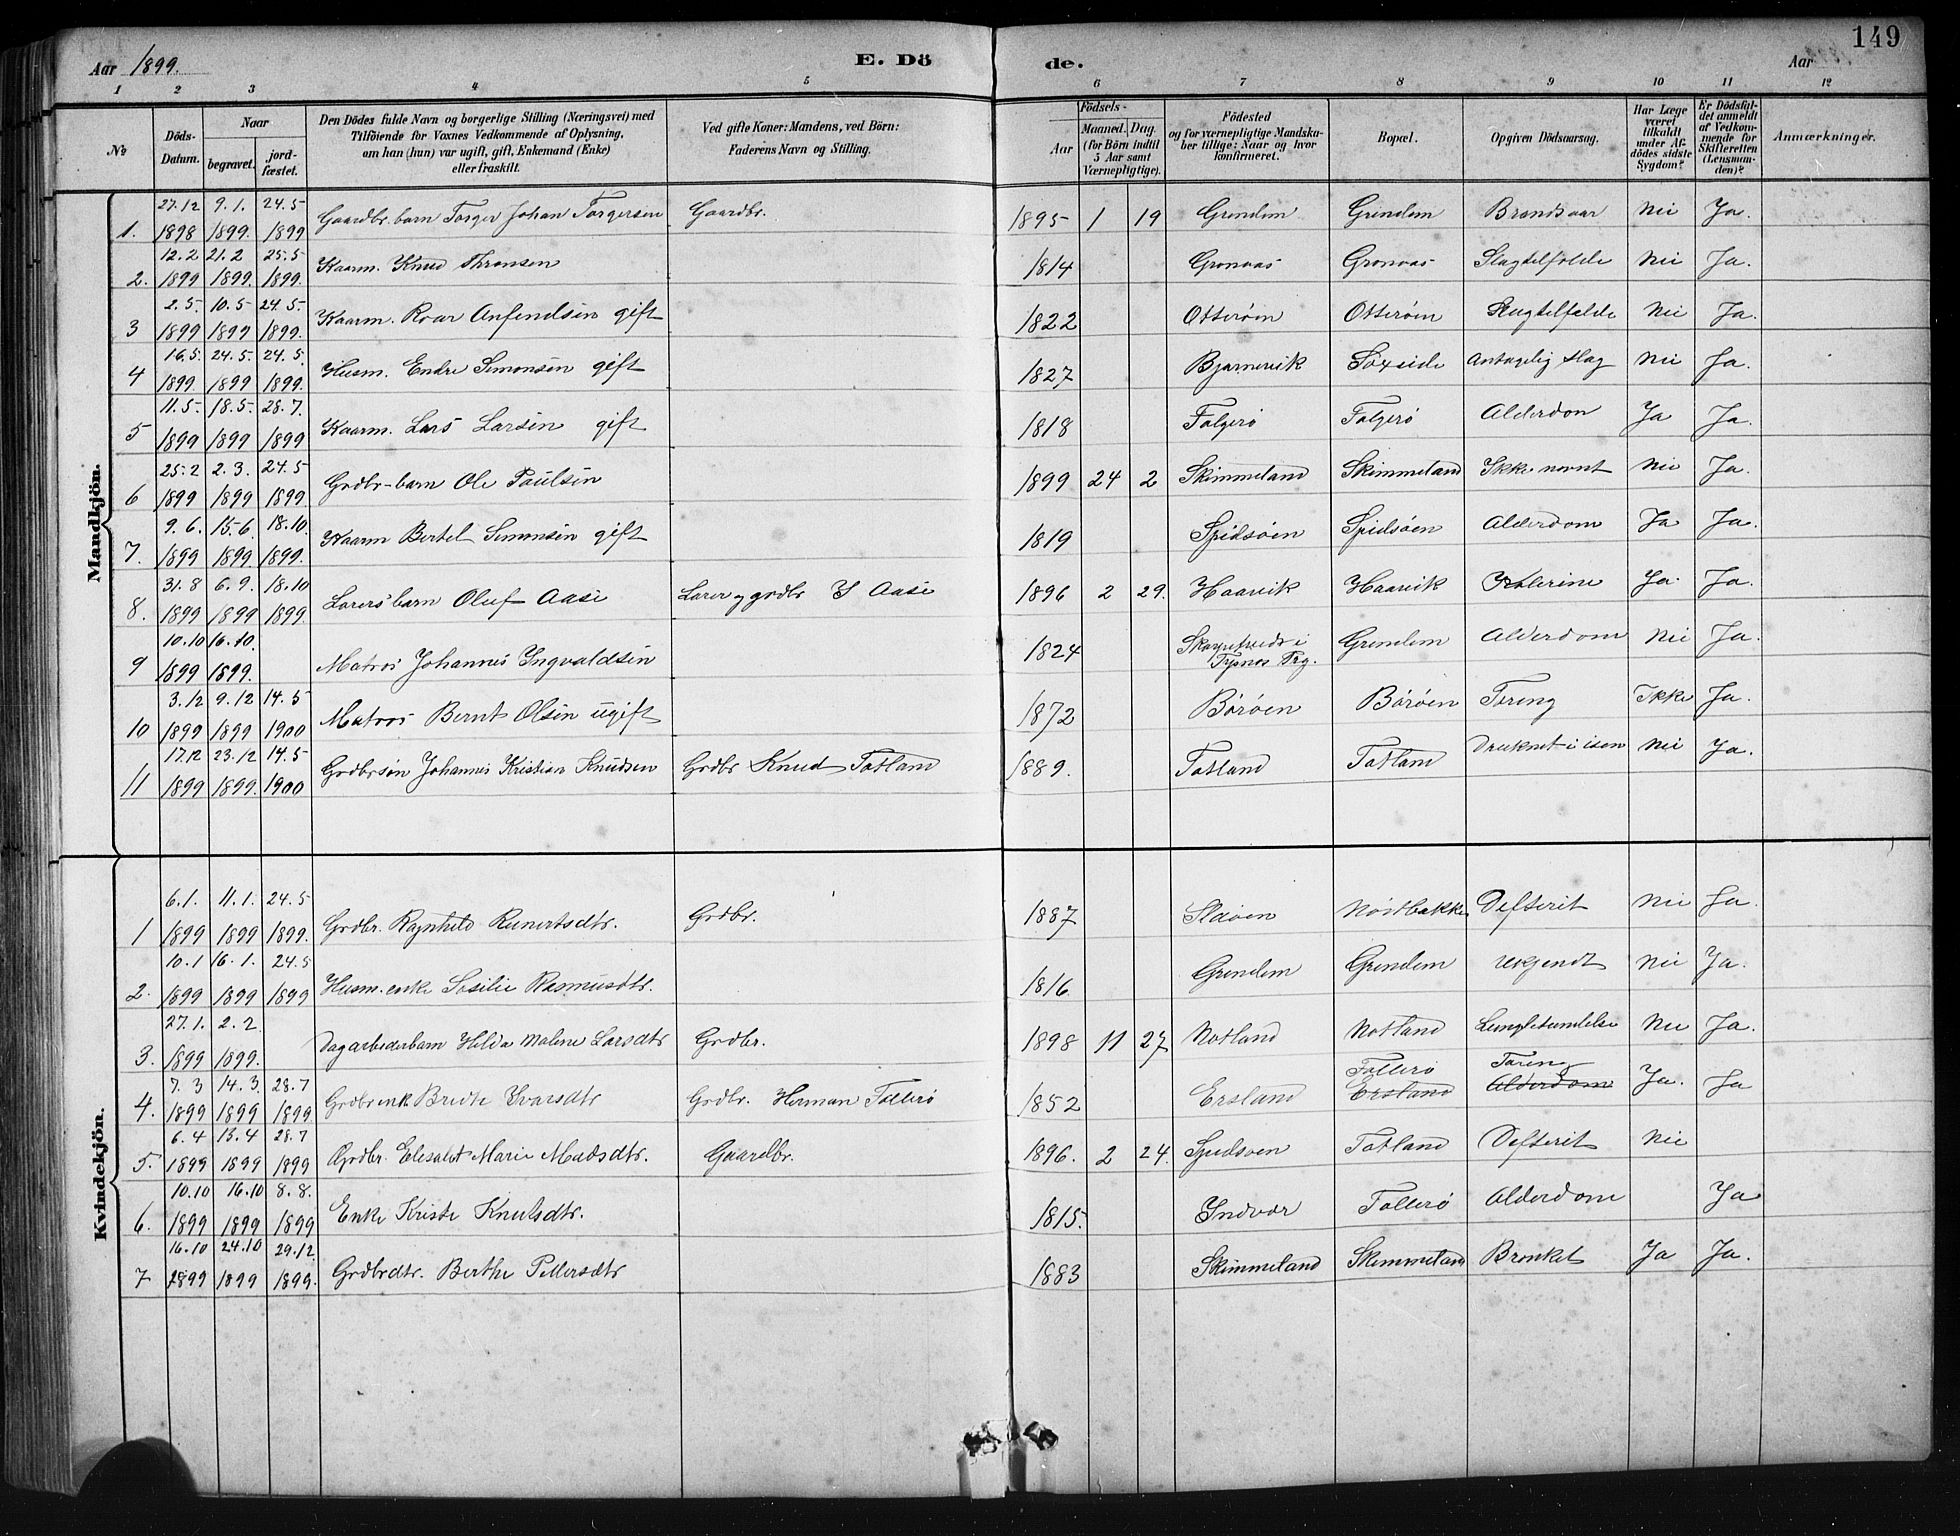 149
Aar 1899.
E. Dö de.
Aar
1 2 3 4 5 6 7 8 9 10 11 12
No
Döds-Datum.
Naar
begravet.
jord-fæstet.
Den Dödes fulde Navn og borgerlige Stilling (Næringsvei) med
Tilföiende for Voxnes Vedkommende af Oplysning,
om han (hun) var ugift, gift, Enkemand (Enke)
eller fraskilt.
Ved gifte Koner: Mandens, ved Börn:
Faderens Navn og Stilling.
Födsels-
Aar
Maaned. Dag.
(for Börn indtil
5 Aar samt
Værnepligtige).
Födested
og for værnepligtige Mandska-
ber tillige: Naar og hvor
konfirmeret.
Bopæl.
Opgiven Dödsaarsag.
Har Læge
været
tilkaldt
under Af-
dödes sidste
Sygdom?
Er Dödsfal-
det anmeldt
af Vedkom-
mende for
Skifteretten
(Lensman-
den)?
Anmærkninger.
Mandkjön.
27.12 9.1. 24.5
1. 1898 1899. 1899 Gaardbr. barn Torger Johan Torgersen Gaardbr. 1895 1 19 Grindem Grindem Brandsaar Nei Ja.
12.2 21.2 25.5
2. 1899 1899. 1899. Kaarm. Knud Thronsen 1814 Gronvas Gronvas Slagtelfælde Nei Ja.
2.5. 10.5 24.5
3 1899 1899 1899. Kaarm. Roar Anfendsen gift 1822 Otterøen Otterøen Slagtelfælde Nei Ja.
16.5. 24.5. 24.5.
4 1899. 1899 1899. Husm. Endre Simonsen gift 1827 Bjarnevik Søxeide Antagelig slag Nei Ja.
11.5. 18.5. 28.7.
5 1899 1899 1899 Kaarm. Lars Larsen gift 1818 Folgerø Folgerø Alderdom Ja Ja.
25.2 2.3. 24.5
6 1899 1899 1899 Grdbr-barn Ole Paulsen 1899 24 2 Skimmeland Skimmeland Ikke nevnt Nei Ja.
9.6. 15.6. 18.10.
7. 1899 1899 1899. Kaarm Bertel Simonsen gift 1819 Spidsøen Spidsøen Alderdom Ja Ja.
31.8 6.9. 18.10
8. 1899 1899 1899. Lærersbarn Oluf Aase Lærer og grdbr I Aase 1896 2 29. Haavik Haavik Ja. Ja.
10.10 16.10.
9 1899 1899. Matros Johannes Ingvaldsen 1824 Tysnes Prg. Grindem Alderdom Nei Ja.
3.12 9.12 14.5
10 1899 1899 1900 Matros Bernt Olsen ugift 1872 Børøen Børøen Tæring Ikke Ja.
17.12 23.12 14.5
11 1899 1899. 1900 Grdbrsøn Johannes Kristian Knudsen Grdbr Knud Totland 1889. Totland Totland Druknet i isen Nei Ja.
Kvindekjön.
6.1. 11.1. 24.5
1 1899 1899 1899. Grdbr. Ragnhild Runertsdtr. Grdbr. 1887 Sldøen Nordbakke Defterit Nei Ja.
10.1 16.1. 24.5
2. 1899 1899 1899 Husm.enke Sesilie Rasmusdtr. 1816. Grindem Grindem ukjendt Nei Ja.
27.1. 2.2.
3. 1899 1899. Dagarbederbarn Hilda Maline Larsdtr Grdbr. 1898 11 27 Notland Notland Lungebetændelse Nei Ja.
7.3 14.3 28.7 Follerø Tæring
4. 1899 1899 1899. Grdbrenk Bredte Ivarsdtr Grdbr. Herman Follerø 1852 Ersland Ersland Alderdom Ja. Ja
6.4 13.4 28.7
5. 1899 1899 1899 Grdbr. Elesabet Marie Madsdtr. Gaardbr. 1896. 2 24. Spidsøen Totland Defterit Nei
10.10 16.10 8.8.
6. 1899 1899 1899 Enke Kriste Knutsdtr. 1815. Indvær Follerø Alderdom Ja
16.10 24.10 29.12
7 1899 1899 1899. Grdbrdtr. Berthe Pettersdtr 1883 Skimmeland Skimmeland Bronket Ja Ja.